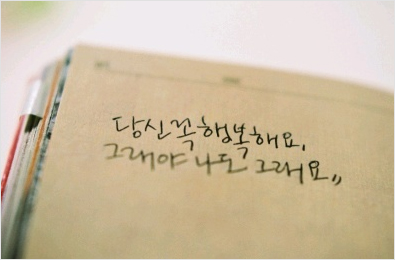 당신 꼭 행복해요.
그래야 나도 그래요,,